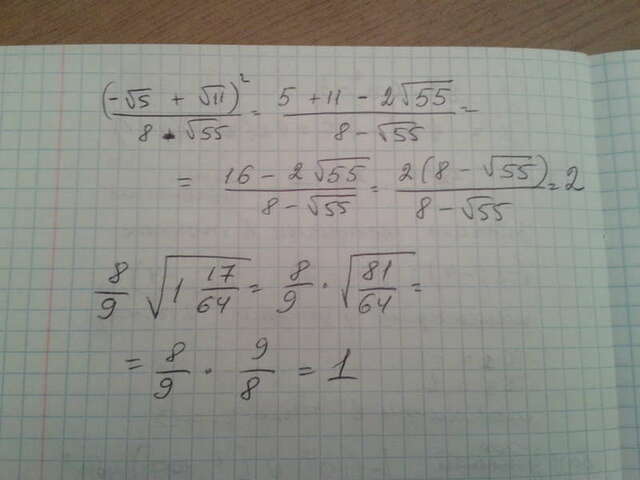 (-√5 + √11)² / (8 - √55) = (5 + 11 - 2√55) / (8 - √55) =
= (16 - 2√55) / (8 - √55) = 2(8 - √55) / (8 - √55) = 2
8/9 √(1 17/64) = 8/9 · √(81/64) =
= 8/9 · 9/8 = 1